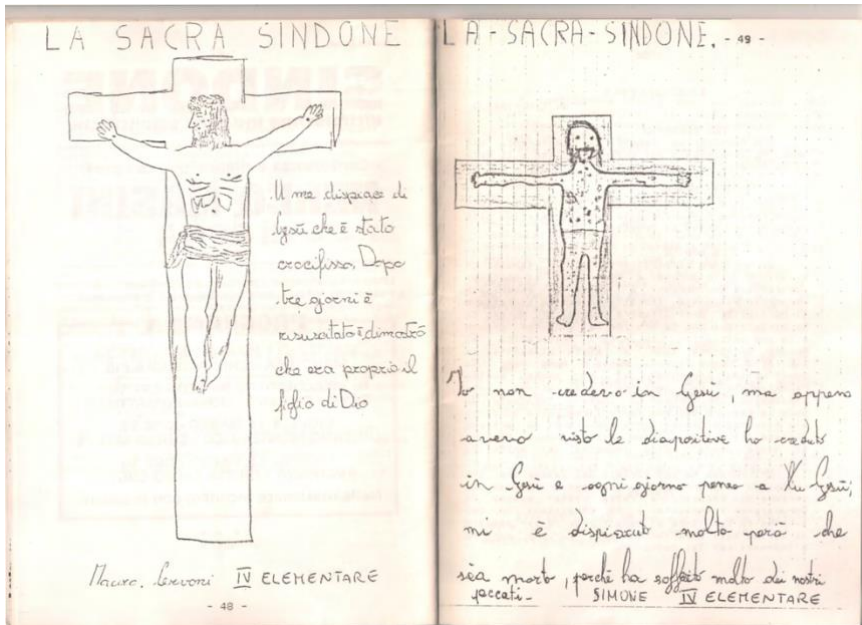 LA SACRA SINDONE
A me dispiace di
Gesù che è stato
crocifisso. Dopo
tre giorni è
risuscitato è dimostrò
che era proprio il
figlio di Dio
Mauro. Cervoni IV ELEMENTARE
- 48 -
LA-SACRA-SINDONE. - 49 -
Io non credevo in Gesù, ma appena
avevo visto le diapositive ho creduto
in Gesù e ogni giorno penso a Gesù;
mi è dispiaciut molto però che
sia morto, perché ha soffrito molto dei nostri
peccati-
SIMONE IV ELEMENTARE